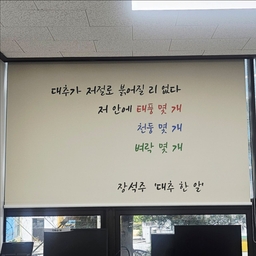 대추가 저절로 붉어질 리 없다
저 안에 태풍 몇 개
천둥 몇 개
벼락 몇 개
장석주 '대추 한 알'